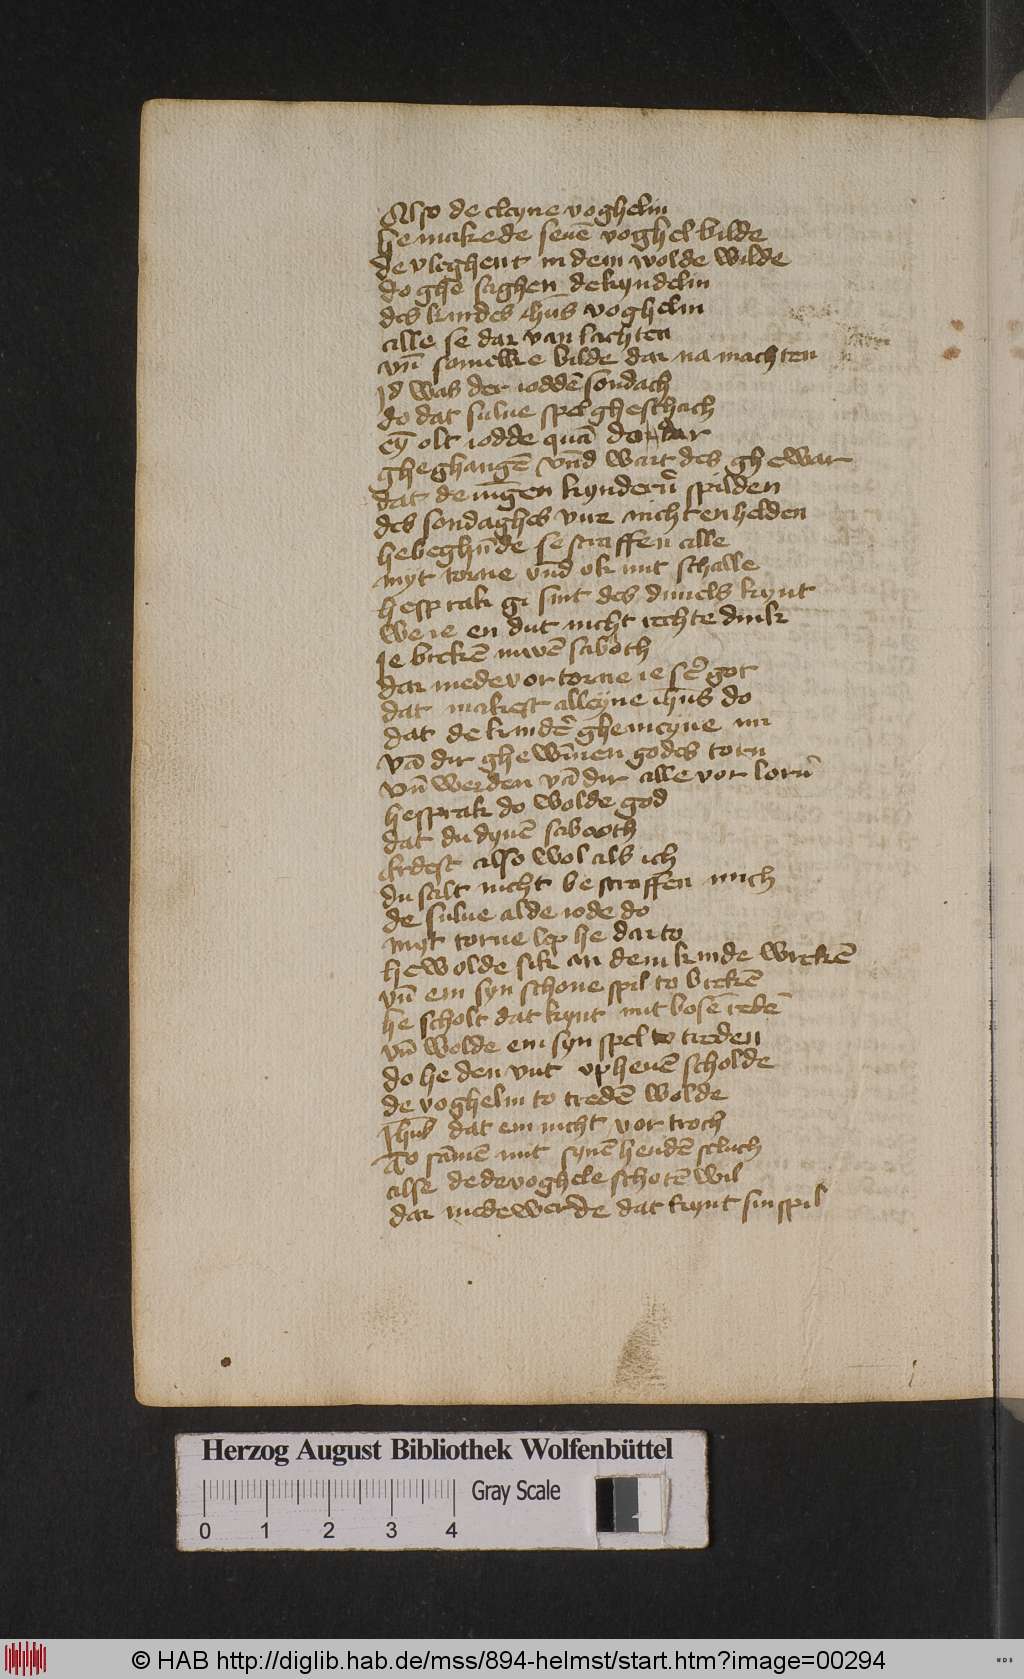 Also de cleyne voghelin
he makede seuē voghel bilde
de vleghent in dem wolde wilde
do ghe saghen de kyndelin
des kindes ihūs voghelin
alle se dar van lachten
vn̄ somelke bilde dar na machten
Jd was der ioddē sondach
do dat sulue spel gheschach
eȳ olt iodde quā dar
gheghangē vnd wart des ghewar
dat de iūgen kynder spilden
des sondaghes vire nicht en helden
he beghūde se straffen alle
myt torne vnd ok mit schalle
he sprak gi sint des duuels kynt
we ie en dut nicht rechte dink
Je brekē iuwē saboth
dar mede vor torne ie got
dat makest alleyne ihūs do
dat de kinder ghemeyne
vā dir ghewinnen godes torn
vn̄ werden vā dir alle vor lorn
he sprak do wolde god
dat du dynē sabooth
erdest also wol als ich
du salt nicht bestraffen mich
de sulue alde iode do
myt torne lep he dar to
he wolde sik an dem kinde wrekē
vn̄ em syn schone spil to brekē
he scholt dat kynt mit bosē redē
vn̄ wolde em syn spel to treden
do he den vut vp heuē scholde
de voghelin to tredē wolde
Jhūs dat em nicht vor troch
to sāmē mit synē hendē sluch
alse de de voghele schotē wil
dar mede werde dat kynt sin spil
Herzog August Bibliothek Wolfenbüttel
Gray Scale
0 1 2 3 4
© HAB http://diglib.hab.de/mss/894-helmst/start.htm?image=00294